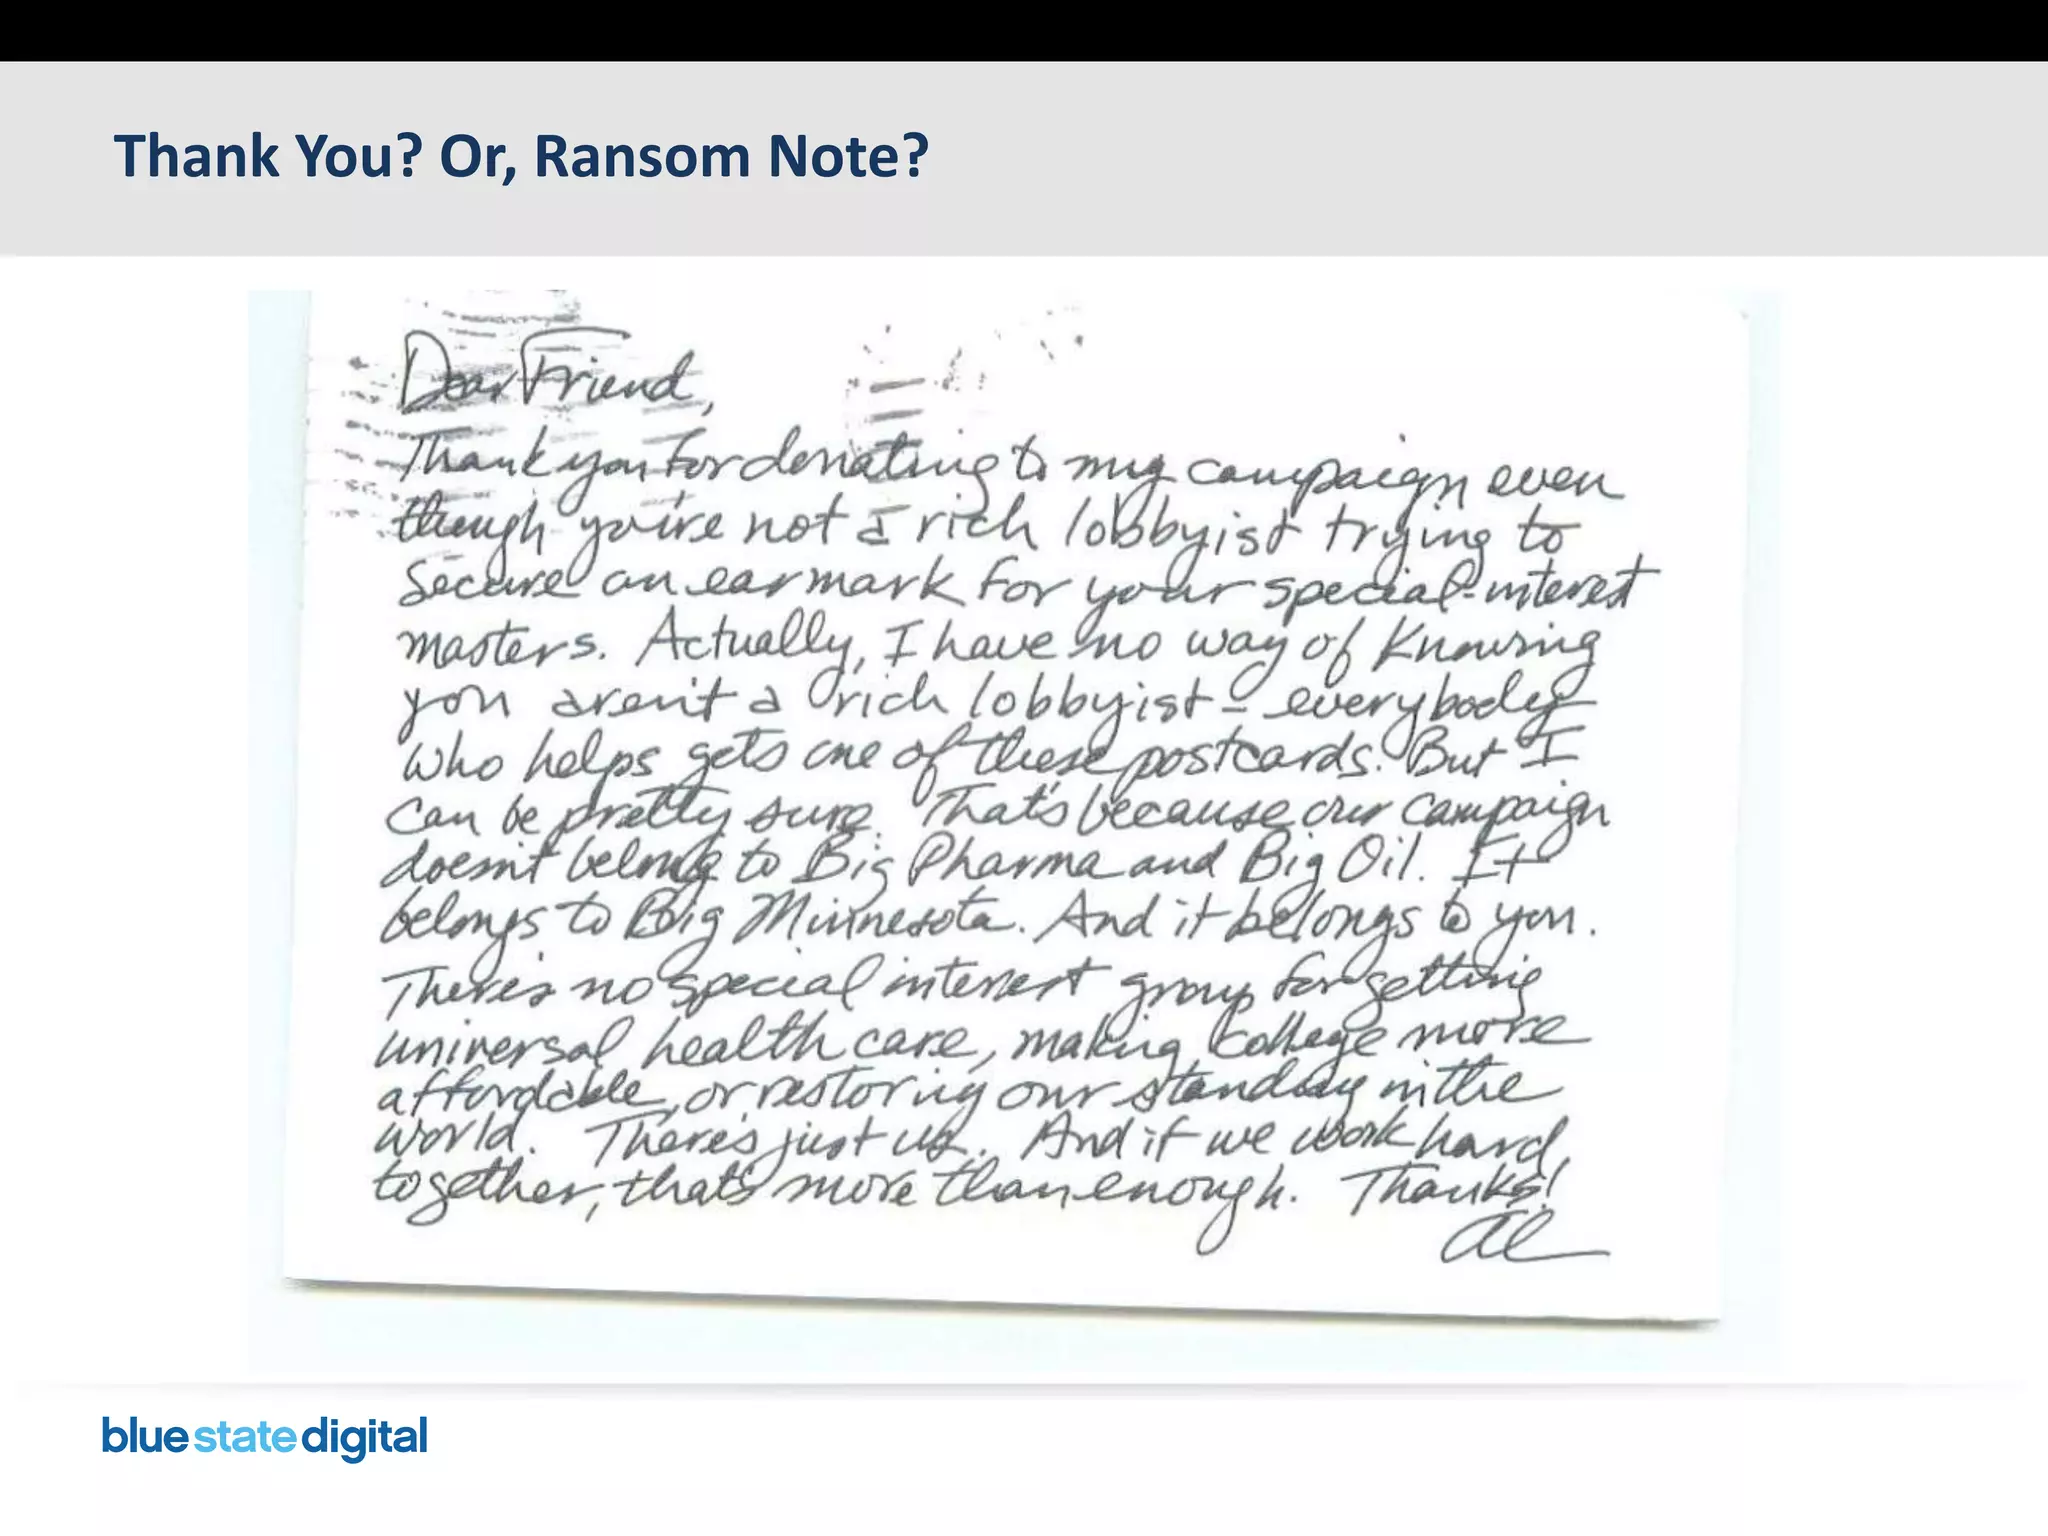 Thank You? Or, Ransom Note?
Dear Friend,
Thank you for donating to my campaign even
though you're not a rich lobbyist trying to
secure an earmark for your special-interest
masters. Actually, I have no way of knowing
you aren't a rich lobbyist - everybody
who helps gets one of these postcards. But I
can be pretty sure. That's because our campaign
doesn't belong to Big Pharma and Big Oil. It
belongs to Big Minnesota. And it belongs to you.
There's no special interest group for getting
universal health care, making college more
affordable, or restoring our standing in the
world. There's just us. And if we work hard
together, that's more than enough. Thanks!
Al
bluestatedigital